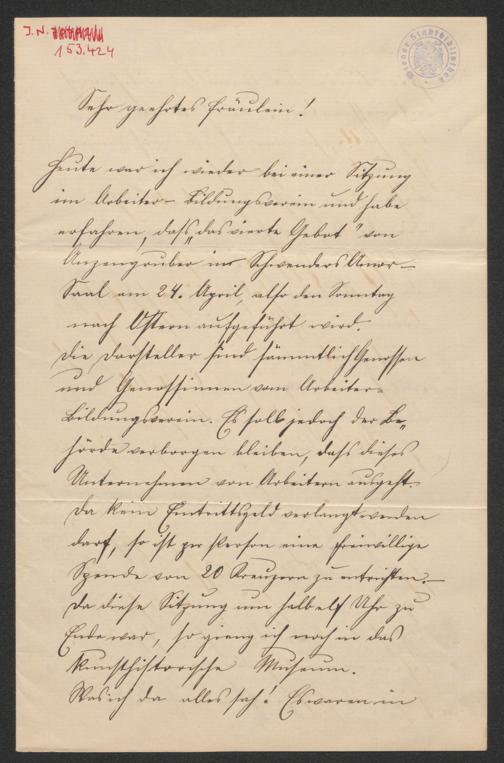 J. N.
153.424
Wiener Stadtbibliothek
Sehr geehrtes Fräulein!
Heute war ich wieder bei einer Sitzung
im Arbeiter-Bildungsverein und habe
erfahren, daß „das vierte Gebot" von
Anzengruber im Schwenders Amor-
Saal am 24. April, also den Sonntag
nach Ostern aufgeführt wird.
Die Darsteller sind sämmtlich Genossen
und Genossinnen vom Arbeiter-
Bildungsverein. Es soll jedoch der Be-
hörde verborgen bleiben, daß dieses
Unternehmen von Arbeitern ausgeht.
Da kein Eintrittsgeld verlangt werden
darf, so ist per Person eine freiwillige
Spende von 20 Kreuzern zu entrichten. –
Da diese Sitzung um halb elf Uhr zu
Ende war, so gieng ich noch in das
kunsthistorische Museum.
Was ich da alles sah! Es waren in